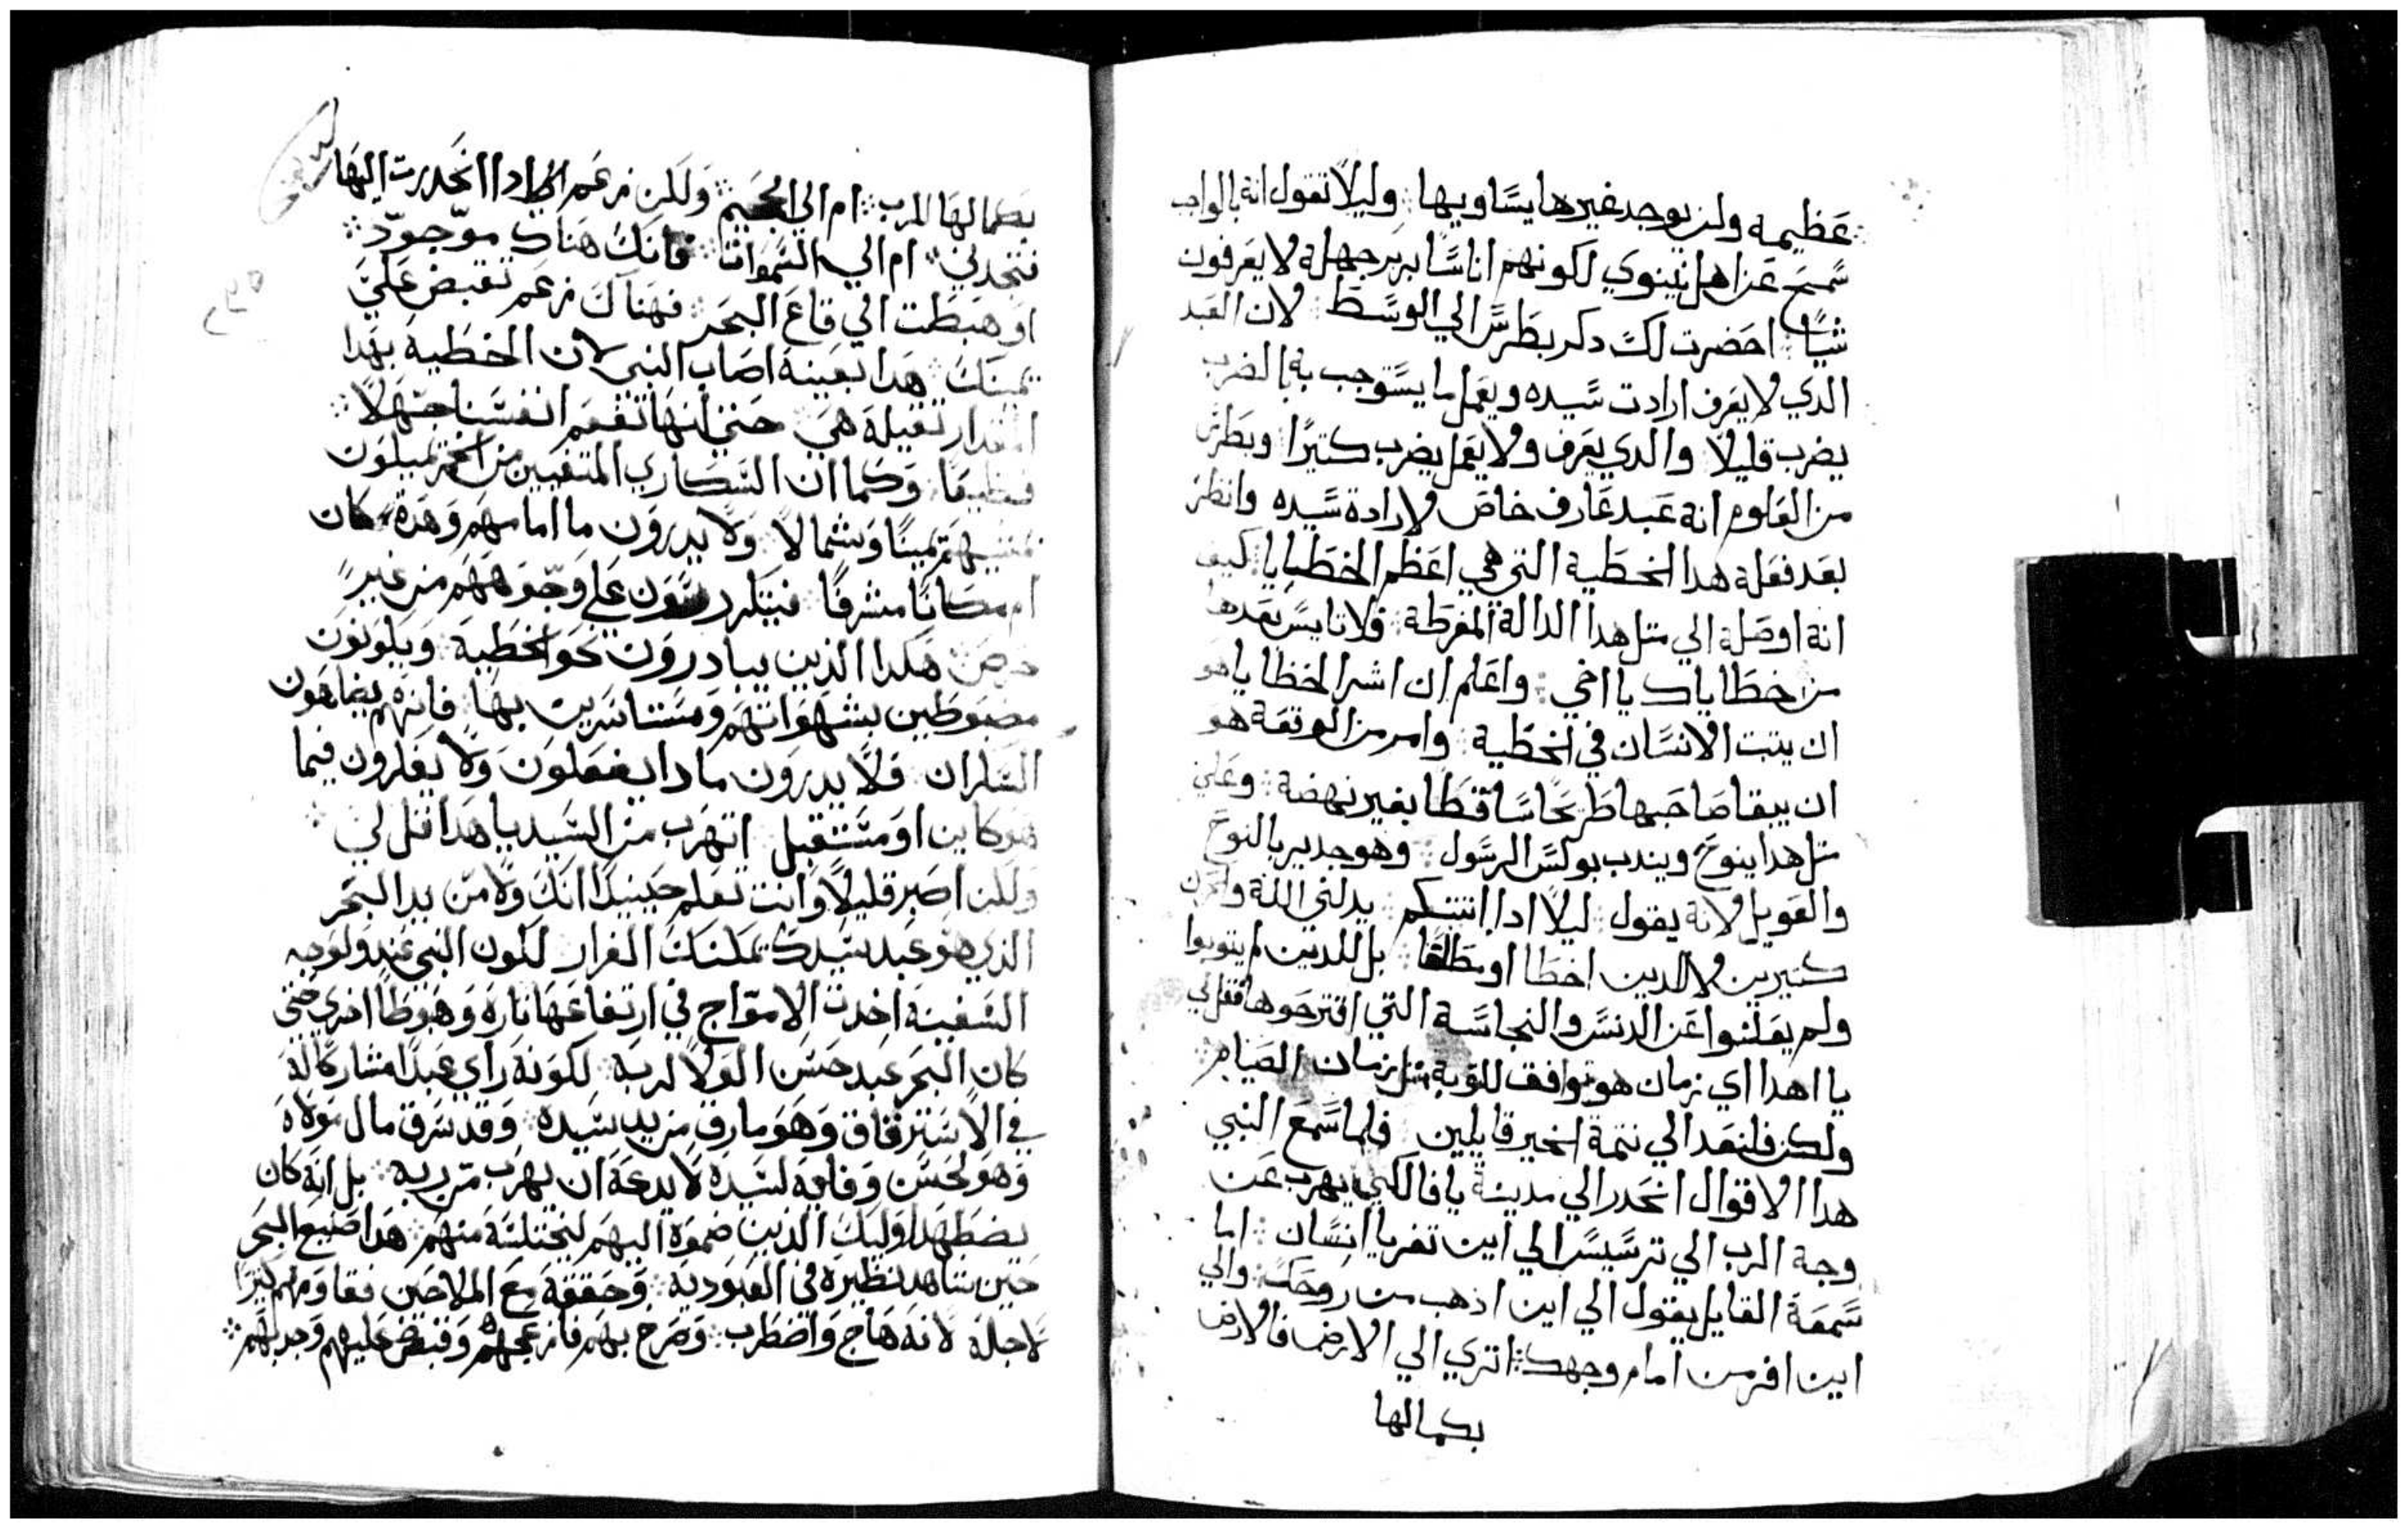 عظيمه ولن يوجد غيرها يساويها ܀ وليلا تقول انه بالواجب
سمح عن اهل نينوي لكونهم اناسًا بربر جهلة لا يعرفون
شيًا ܀ احضرت لك دكر بطرس الي الوسط ܀ لان العبد
الدي لا يعرف ارادت سيده ويعمل ما يستوجب به الضرب
يضرب قليلا والدي يعرف ولا يعمل يضرب كتيرًا وبطرس
من المعلوم انه عبد عارف خاص لارادة سيده وانظر
بعد فعله هدا الخطية التي هي اعظم الخطايا كيف
انه اوصله الي متل هدا الدالة المفرطة ܀ فلا تايس بعدها
من خطاياك يا اخي ܀ واعلم ان اشر الخطايا هو
ان يتبت الانسان في الخطية ܀ وامر من الوقعة هو
ان يبقا صاحبها طريحًا ساقطًا بغير نهضة ܀ وعلي
متل هدا ينوح ويندب بولس الرسول ܀ وهو جدير بالنوح
والعويل لانه يقول ܀ ليلا ادا اتيتكم يدلني الله واحزن
كتيرين لا الدين اخطا او مطلقا ܀ بل للدين لم يتوبوا
ولم يعلنوا عن الدنس والنجاسة التي اقترحوها فقل لي
يا اهدا اي زمان هو موافق للتوبة متل زمان الصيام ܀
ولكن فلنعد الي تتمة الخبر قايلين ܀ فلما سمع النبي
هدا الاقوال انحدر الي مدينة يافا لكي يهرب عن
وجه الرب الي ترسيس الي اين تفر يا انسان ܀ اما
سمعة القايل يقول الي اين ادهب من روحك ܀ والي
اين افر من امام وجهك ܀ اتري الي الارض فالارض
بكمالها
بكمالها للرب ܀ ام الي الجحيم ܀ ولكن زعم ادا انحدرت اليها
فتجدني ܀ ام الي السموات فانك هناك موجود ܀
او هبطت الي قاع البحر ܀ فهناك زعم تقبض علي
يمينك ܀ هدا بعينه اصاب النبي لان الخطية بهدا
المقدار تقيلة هي حتي انها تفعم انفسنا جهلا ܀
وكما ان السكاري المتقيين من الخمر يميلون
يمينًا وشمالا ܀ ولا يدرون ما امامهم وهدة كان
ام مكانا مشرفًا فيتكردسون علي وجوههم من غير
حرص ܀ هكدا الذين يبادرون نحو الخطية ويكونون
مضبوطين بشهواتهم ومستاسرين بها ܀ فانهم يضاهون
السكران فلا يدرون مادا يفعلون ولا يفكرون فيما
هو كاين او مستقبل اتهرب من السيد يا هدا قل لي ܀
ولكن اصبر قليلا وانت تعلم حينيدا انك ولا من يد البحر
الذي هو عبد سيدك تمكنك الفرار لكون النبي عند ولوجه
السفينة اخدت الامواج في ارتفاعها تارة وهبوطًا اخري حتي
كان البحر عبد حسن الولا لربه لكونه راي عبدا مشاركا له
في الاسترقاق وهو مارق من يد سيده ܀ وقد سرق مال مولاه
وهو لحسن وفايه لسيده لا يدعه ان يهرب من ربه ܀ بل انه كان
يضطهد اوليك الذين ضموه اليهم ليختلسه منهم ܀ هدا صنيع البحر
حين شاهد نظيره في العبودية ܀ وحققه مع الملاحين فقاومهم كتيرًا
لاجله لانه هاج واضطرب ܀ وصرخ بهم فازعجهم وقبض عليهم وجدبهم ܀